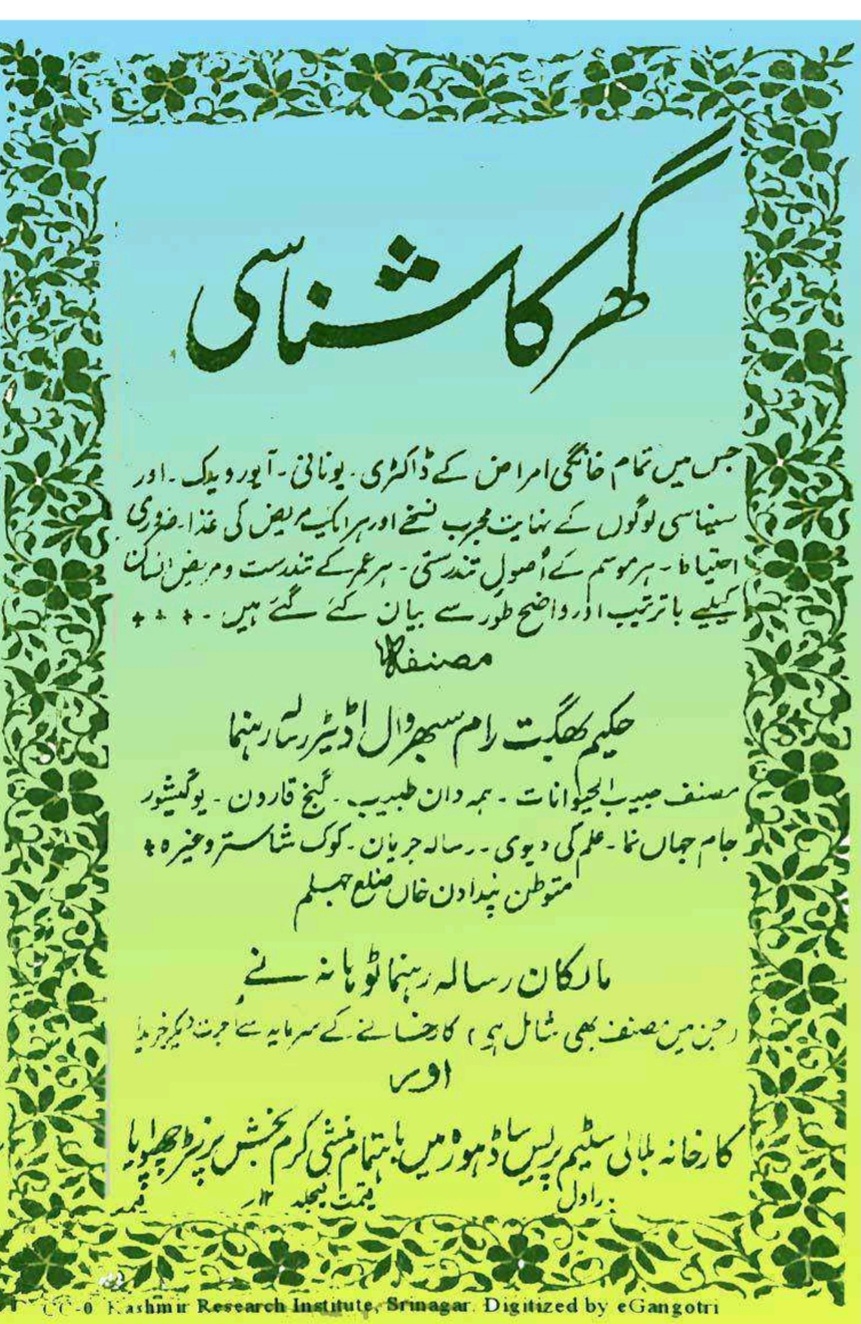 گھر کا شناسی
جس میں تمام خانگی امراض کے ڈاکٹری۔ یونانی۔ آیورویدک۔ اور
سنیاسی لوگوں کے نہایت مجرب نسخے اور ہر ایک مریض کی غذا۔ ضروری
احتیاط۔ ہر موسم کے اُصول تندرستی۔ ہر عمر کے تندرست و مریض انسان
کیلیے با ترتیب اور واضح طور سے بیان کئے گئے ہیں۔
مصنفہ
حکیم بھگت رام سبھروال اڈیٹر رسالہ رہنما
مصنف حبیب الحیوانات۔ ہمہ دان طبیب۔ گنج قارون۔ یوگیشور
جام جہاں نما۔ علم کی دیوی۔۔ رسالہ جریان۔ کوک شاستر وغیرہ
متوطن پنڈادن خاں ضلع جہلم
مالکان رسالہ رہنما ٹوہانہ نے
(جن میں مصنف بھی شامل ہے) کارخانے کے سرمایہ سے اجرت دیکر خریدا
اور
کارخانہ ہلالی سٹیم پریس ساڈہورہ میں باہتمام منشی کرم بخش پرنٹر چھپوایا
اول
قیمت فیجلد ۱۲ر
CC-0 Kashmir Research Institute, Srinagar. Digitized by eGangotri